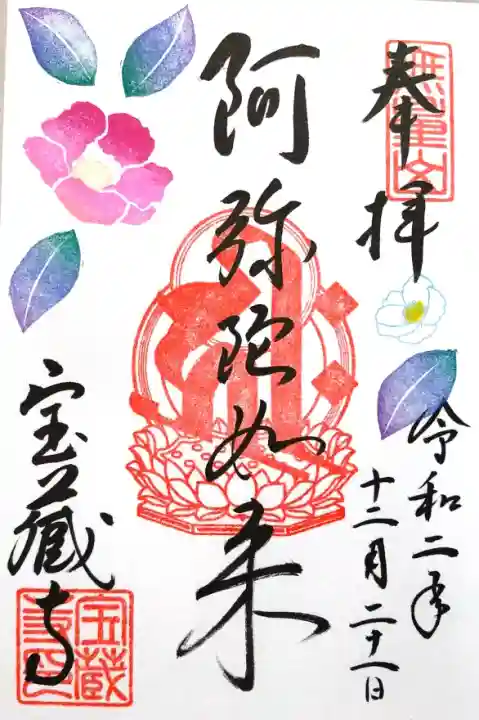 奉拝
無量山
令和二年
十二月二十一日
阿弥陀如来
宝蔵寺
宝蔵寺印